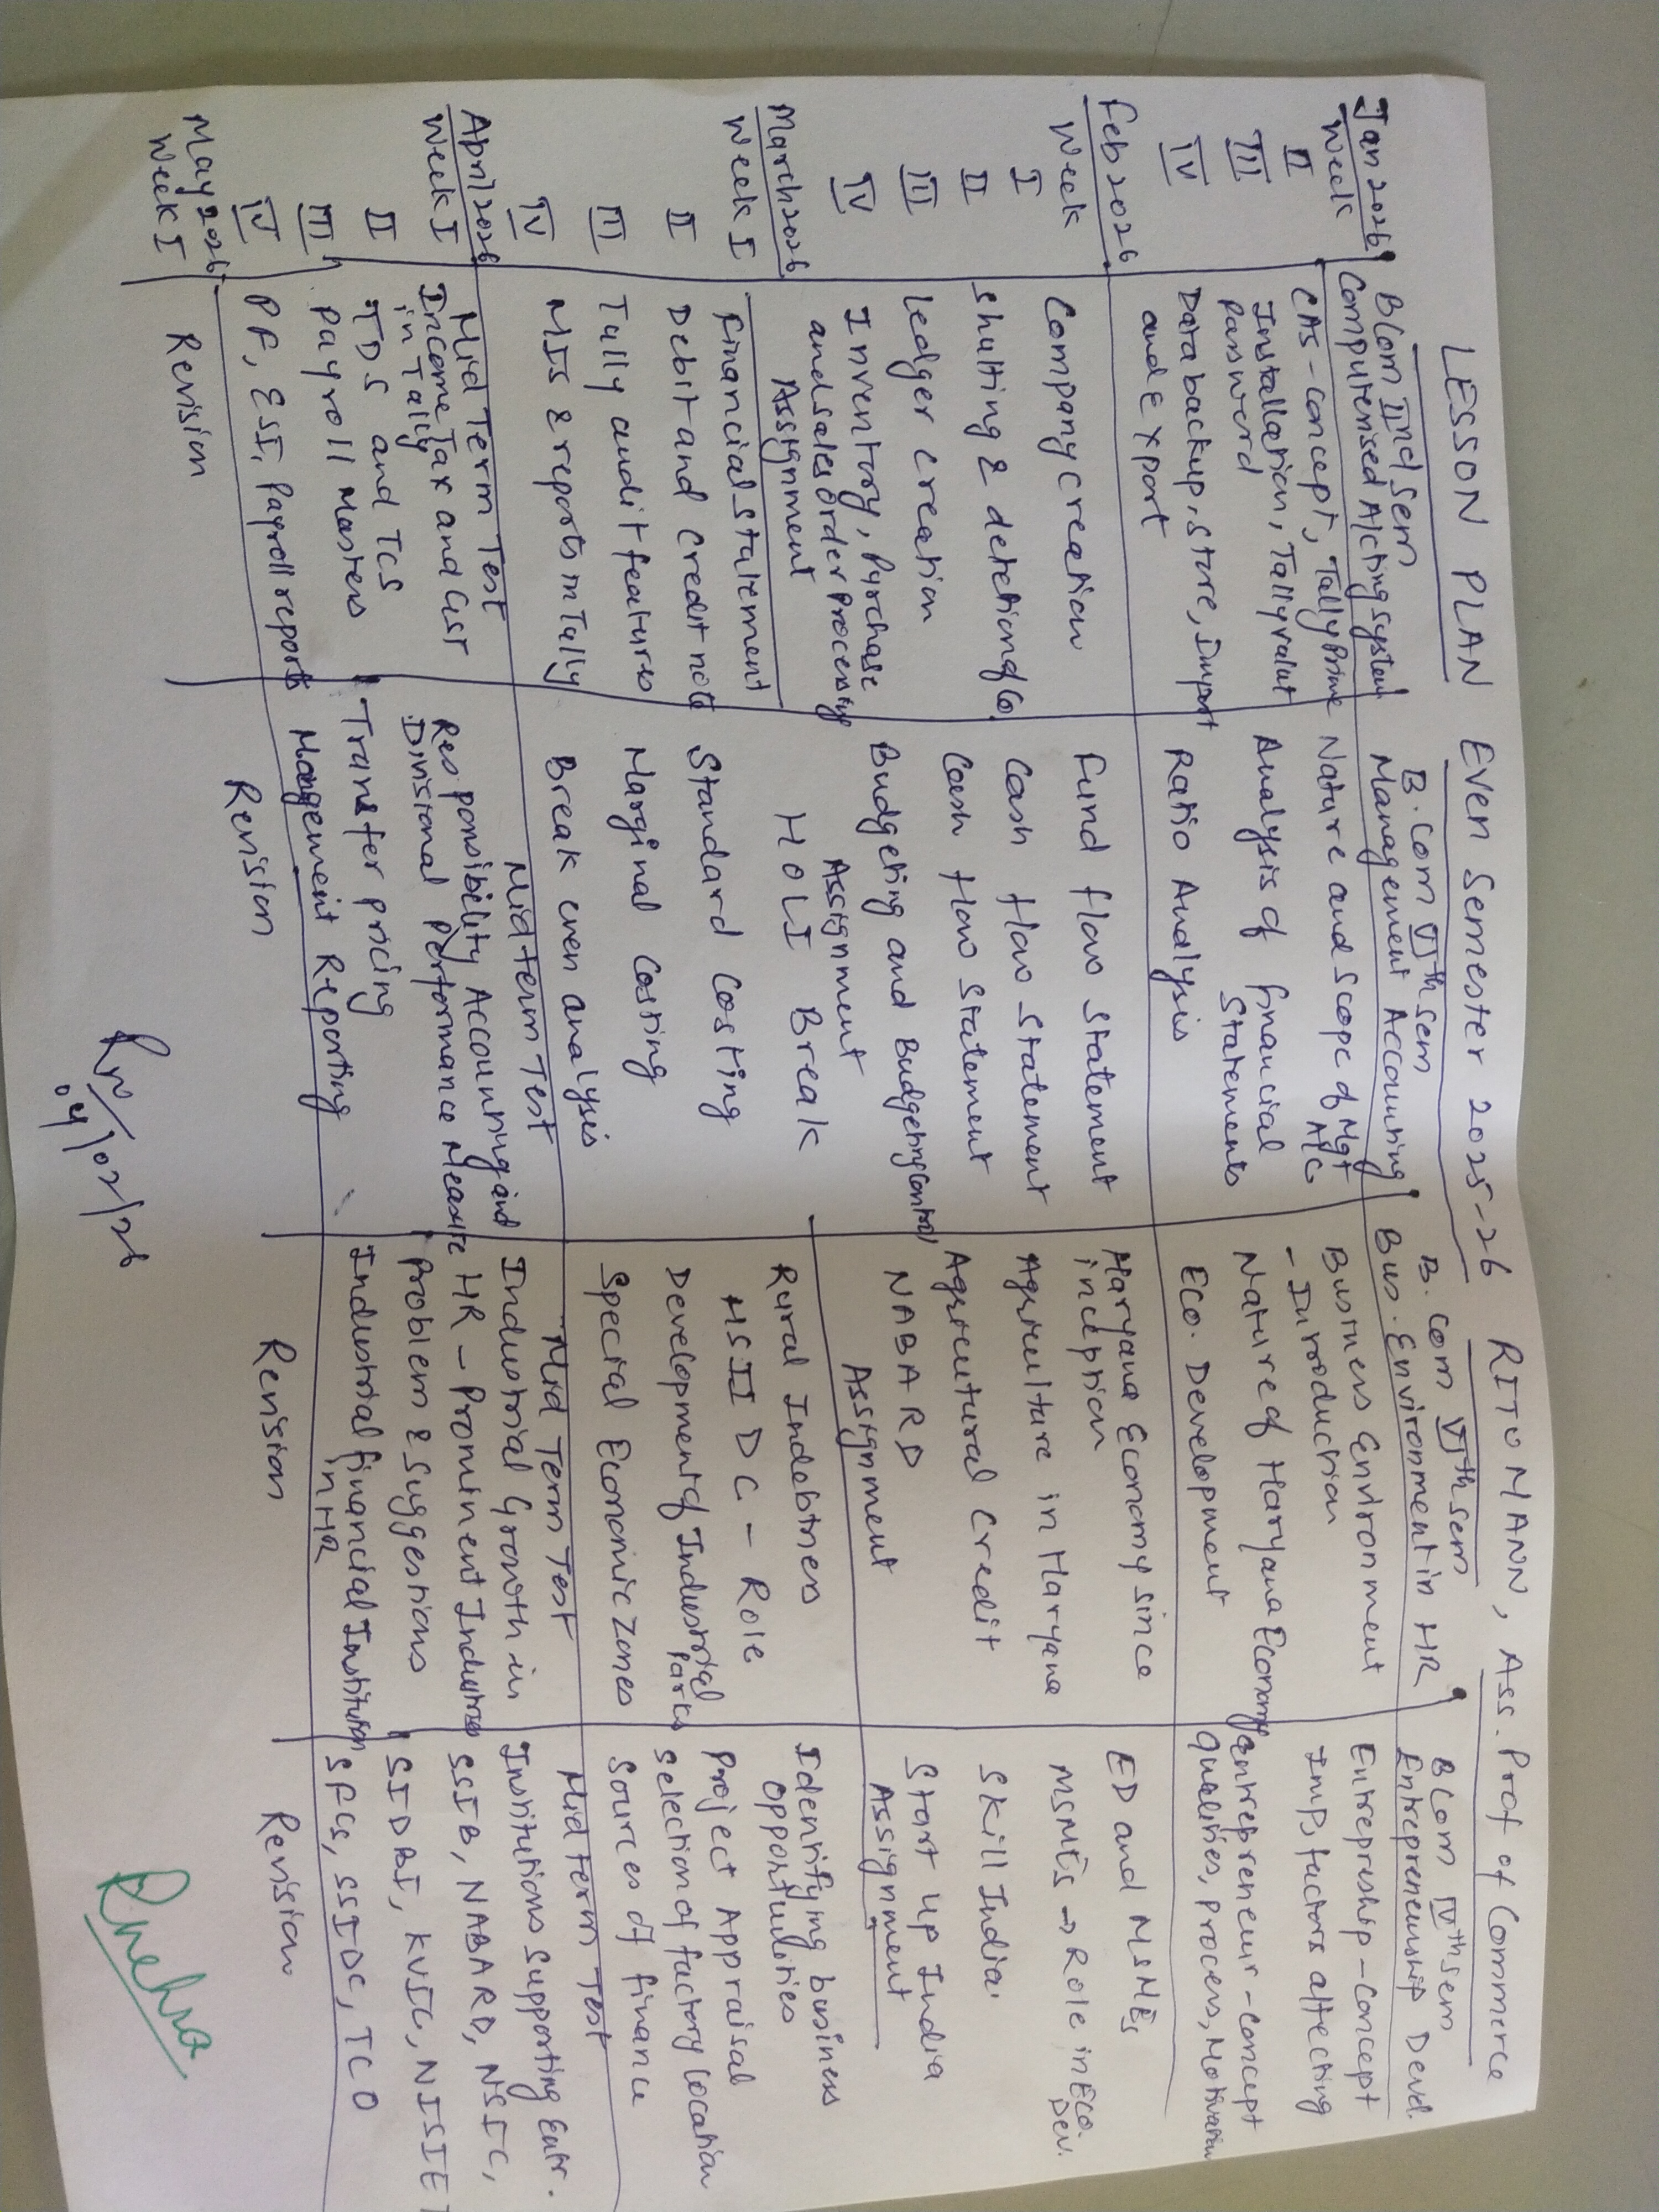 LESSON PLAN EVEN Semester 2025-26 RITU MANN, Ass. Prof of Commerce
Jan 2026 BCom IInd Sem B.Com VIth Sem B.Com VIth Sem BCom IVth Sem
Week Computerised A/cting System Management Accounting Bus. Environment in HR Entrepreneurship Devel.
II CAS-Concept, Tally Prime Nature and Scope of Mgt A/C Business Environment - Introduction Entrepreship-Concept Imp, factors affecting
III Installation, Tally vault Password Analysis of financial Statements Nature of Haryana Economy Entrepreneur-Concept
IV Data backup, store, import and Export Ratio Analysis Eco. Development Qualities, process, Motivation
Feb 2026
Week
I Company creation Fund flow statement Haryana Economy since inception ED and MSMEs
II Shutting & deletion of Co. Cash flow statement Agriculture in Haryana MSMEs → Role in Eco. Dev.
III Ledger creation Cash flow statement Agricultural Credit Skill India.
IV Inventory, Purchase and sales order Processing Budgeting and Budgetary Control NABARD Start up India
Assignment Assignment Assignment Assignment
March 2026
Week I Financial statement HOLI Break Rural Indebtness Identifying business opportunities
II Debit and Credit note Standard Costing HSIIDC - Role Project Appraisal
III Tally audit features Marginal Costing Development of Industrial Parks Selection of factory location
IV MIS & reports in Tally Break even analysis Special Economic Zones Sources of finance
April 2026 Mid Term Test Mid term Test Mid Term Test Mid term Test
Week I Income Tax and GST in Tally Responsibility Accounting and Industrial Growth in Institutions Supporting Entr.
II TDS and TCS Divisional Performance Measure HR - Prominent Industries SSIB, NABARD, NSIC,
III Payroll Masters Transfer pricing Problem & Suggestions SIDBI, KVIC, NISIET
IV PF, ESI, Payroll reports Management Reporting Industrial financial Institution in HR SFCs, SSIDC, TCO
May 2026
Week I Revision Revision Revision Revision
04/02/26